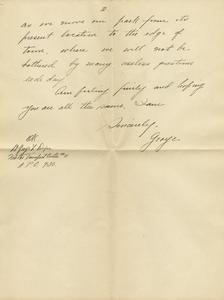 2.
as we move our park from its
present location to the edge of
town, where we will not be
bothered by many useless questions
each day.
Am feeling finely and hoping
you are all the same, I am
Sincerely,
George
OK
A.P.O. 930.